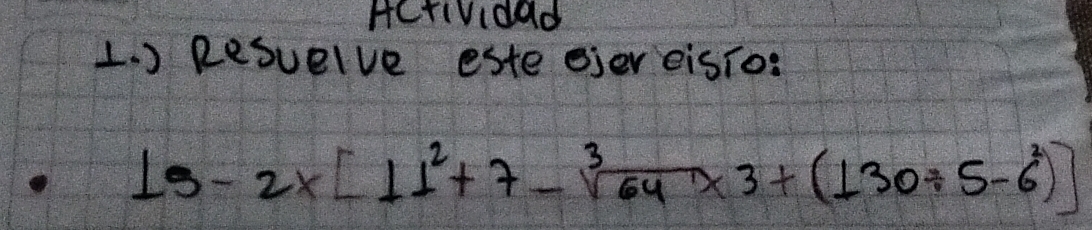 Actividad
1.) Resuelve este ejereisio:
• 15 - 2 x [ 11² + 7 - ∛64 x 3 + (130 ÷ 5 - 6²)]